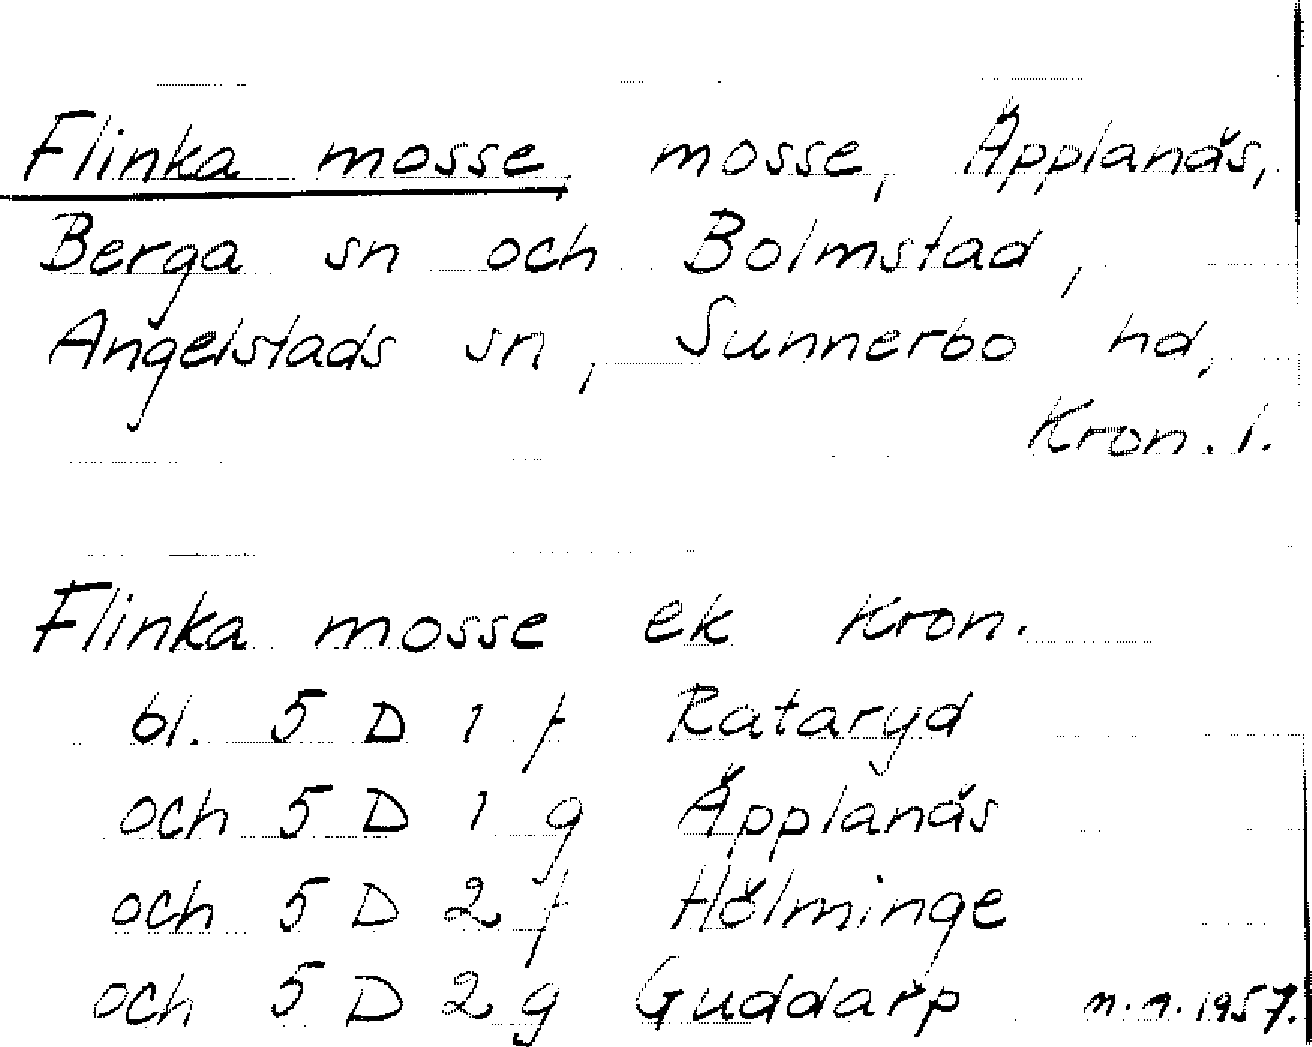 Flinka mosse, mosse, Äpplanäs,
Berga sn och Bolmstad,
Angelstads sn, Sunnerbo hd,
Kron. l.
Flinka mosse ek Kron.
bl. 5 D 1 f Rataryd
och 5 D 1 g Äpplanäs
och 5 D 2 f Hölminge
och 5 D 2 g Guddarp n.n. 1957.